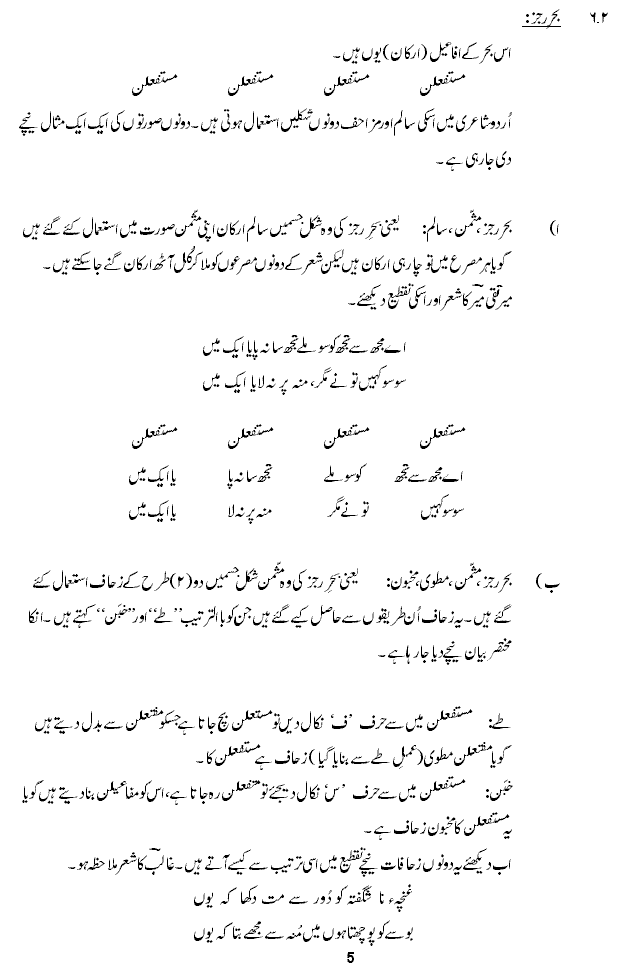 ۶.۲ بحرِ رجز :
اس بحر کے افاعیل (ارکان) یوں ہیں ۔
مستفعلن مستفعلن مستفعلن مستفعلن
اُردو شاعری میں اسکی سالم اور مزاحف دونوں شکلیں استعمال ہوتی ہیں ۔ دونوں صورتوں کی ایک ایک مثال نیچے
دی جا رہی ہے ۔
ا) بحر رجز، مثمّن، سالم: یعنی بحرِ رجز کی وہ شکل جسمیں سالم ارکان اپنی مثمّن صورت میں استعمال کئے گئے ہیں
گویا ہر مصرع میں تو چار ہی ارکان ہیں لیکن شعر کے دونوں مصرعوں کو ملا کر کُل آٹھ ارکان گنے جا سکتے ہیں ۔
میر تقی میرؔ کا شعر اور اسکی تقطیع دیکھئے ۔
اے مجھ سے تجھ کو سو ملے تجھ سا نہ پایا ایک میں
سو سو کہیں تو نے مگر، منہ پر نہ لایا ایک میں
مستفعلن مستفعلن مستفعلن مستفعلن
اے مجھ سے تجھ کو سو ملے تجھ سا نہ پا یا ایک میں
سو سو کہیں تو نے مگر منہ پر نہ لا یا ایک میں
ب) بحر رجز، مثمّن، مطوی، مخبون: یعنی بحرِ رجز کی وہ مثمّن شکل جسمیں دو (۲) طرح کے زحاف استعمال کئے
گئے ہیں ۔ یہ زحاف اُن طریقوں سے حاصل کیے گئے ہیں جن کو بالترتیب ”طے“ اور ”خبَن“ کہتے ہیں ۔ انکا
مختصر بیان نیچے دیا جا رہا ہے ۔
طے: مستفعلن میں سے حرف ’ف‘ نکال دیں تو مستعلن بچ جاتا ہے جسکو مفتعلن سے بدل دیتے ہیں
گویا مفتعلن مطوی (عملِ طے سے بنایا گیا) زحاف ہے مستفعلن کا ۔
خبَن: مستفعلن میں سے حرف ’س‘ نکال دیجئے تو متفعلن رہ جاتا ہے، اس کو مفاعیلن بنا دیتے ہیں گویا
یہ مستفعلن کا مخبون زحاف ہے ۔
اب دیکھئے یہ دونوں زحافات نیچے تقطیع میں اسی ترتیب سے کیسے آتے ہیں ۔ غالبؔ کا شعر ملاحظہ ہو ۔
غنچہء نا شگفتہ کو دُور سے مت دکھا کہ یوں
بوسے کو پوچھتا ہوں میں مُنہ سے مجھے بتا کہ یوں
5